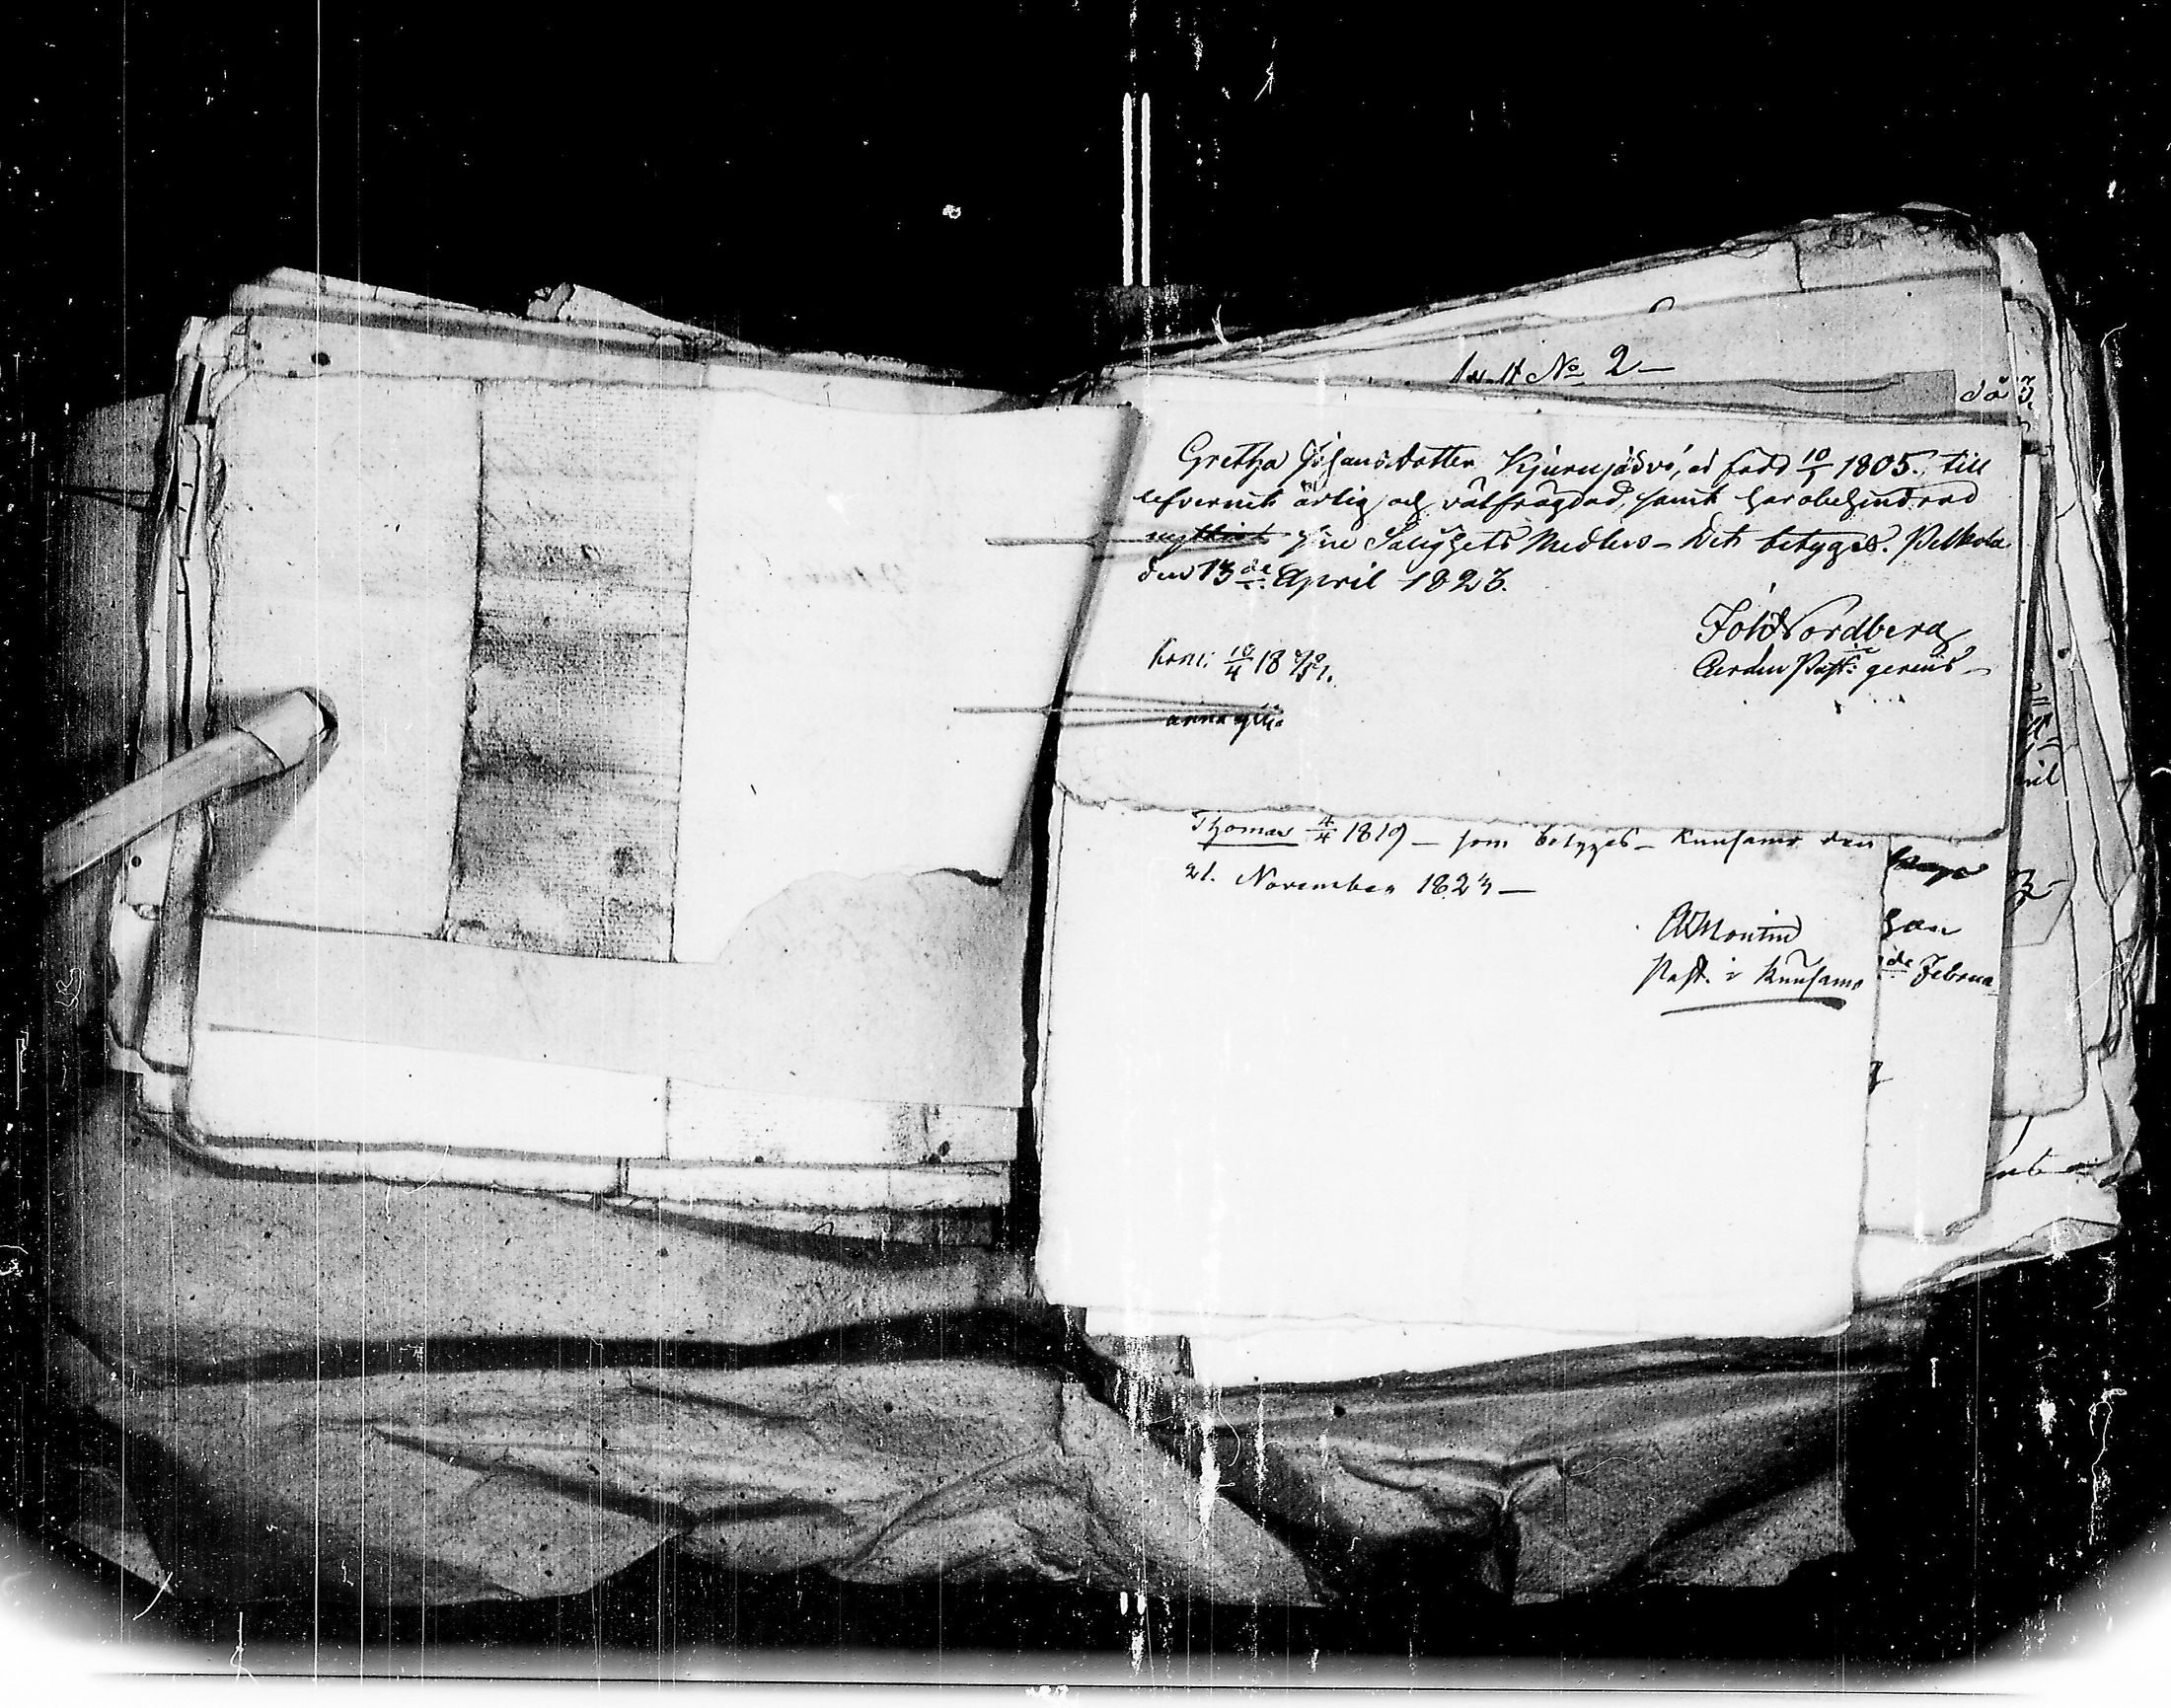 No 2
då
Gretha Johansdotter Kjurujärvi, är född 10/1 1805. till
lefvernet ärlig och välfrägdad, samt har obehindrad
nyttjat sine Salighets Medlen - Det betygas. Pelkola
den 13de April 1823.
Joh Nordberg
Past: gerens
kom: 10/4 18
Thomas 4/4 1819 - som betygas - Kuusamo den
21. November 1823 -
A Montin
Past. i Kuusamo
han
de Februa